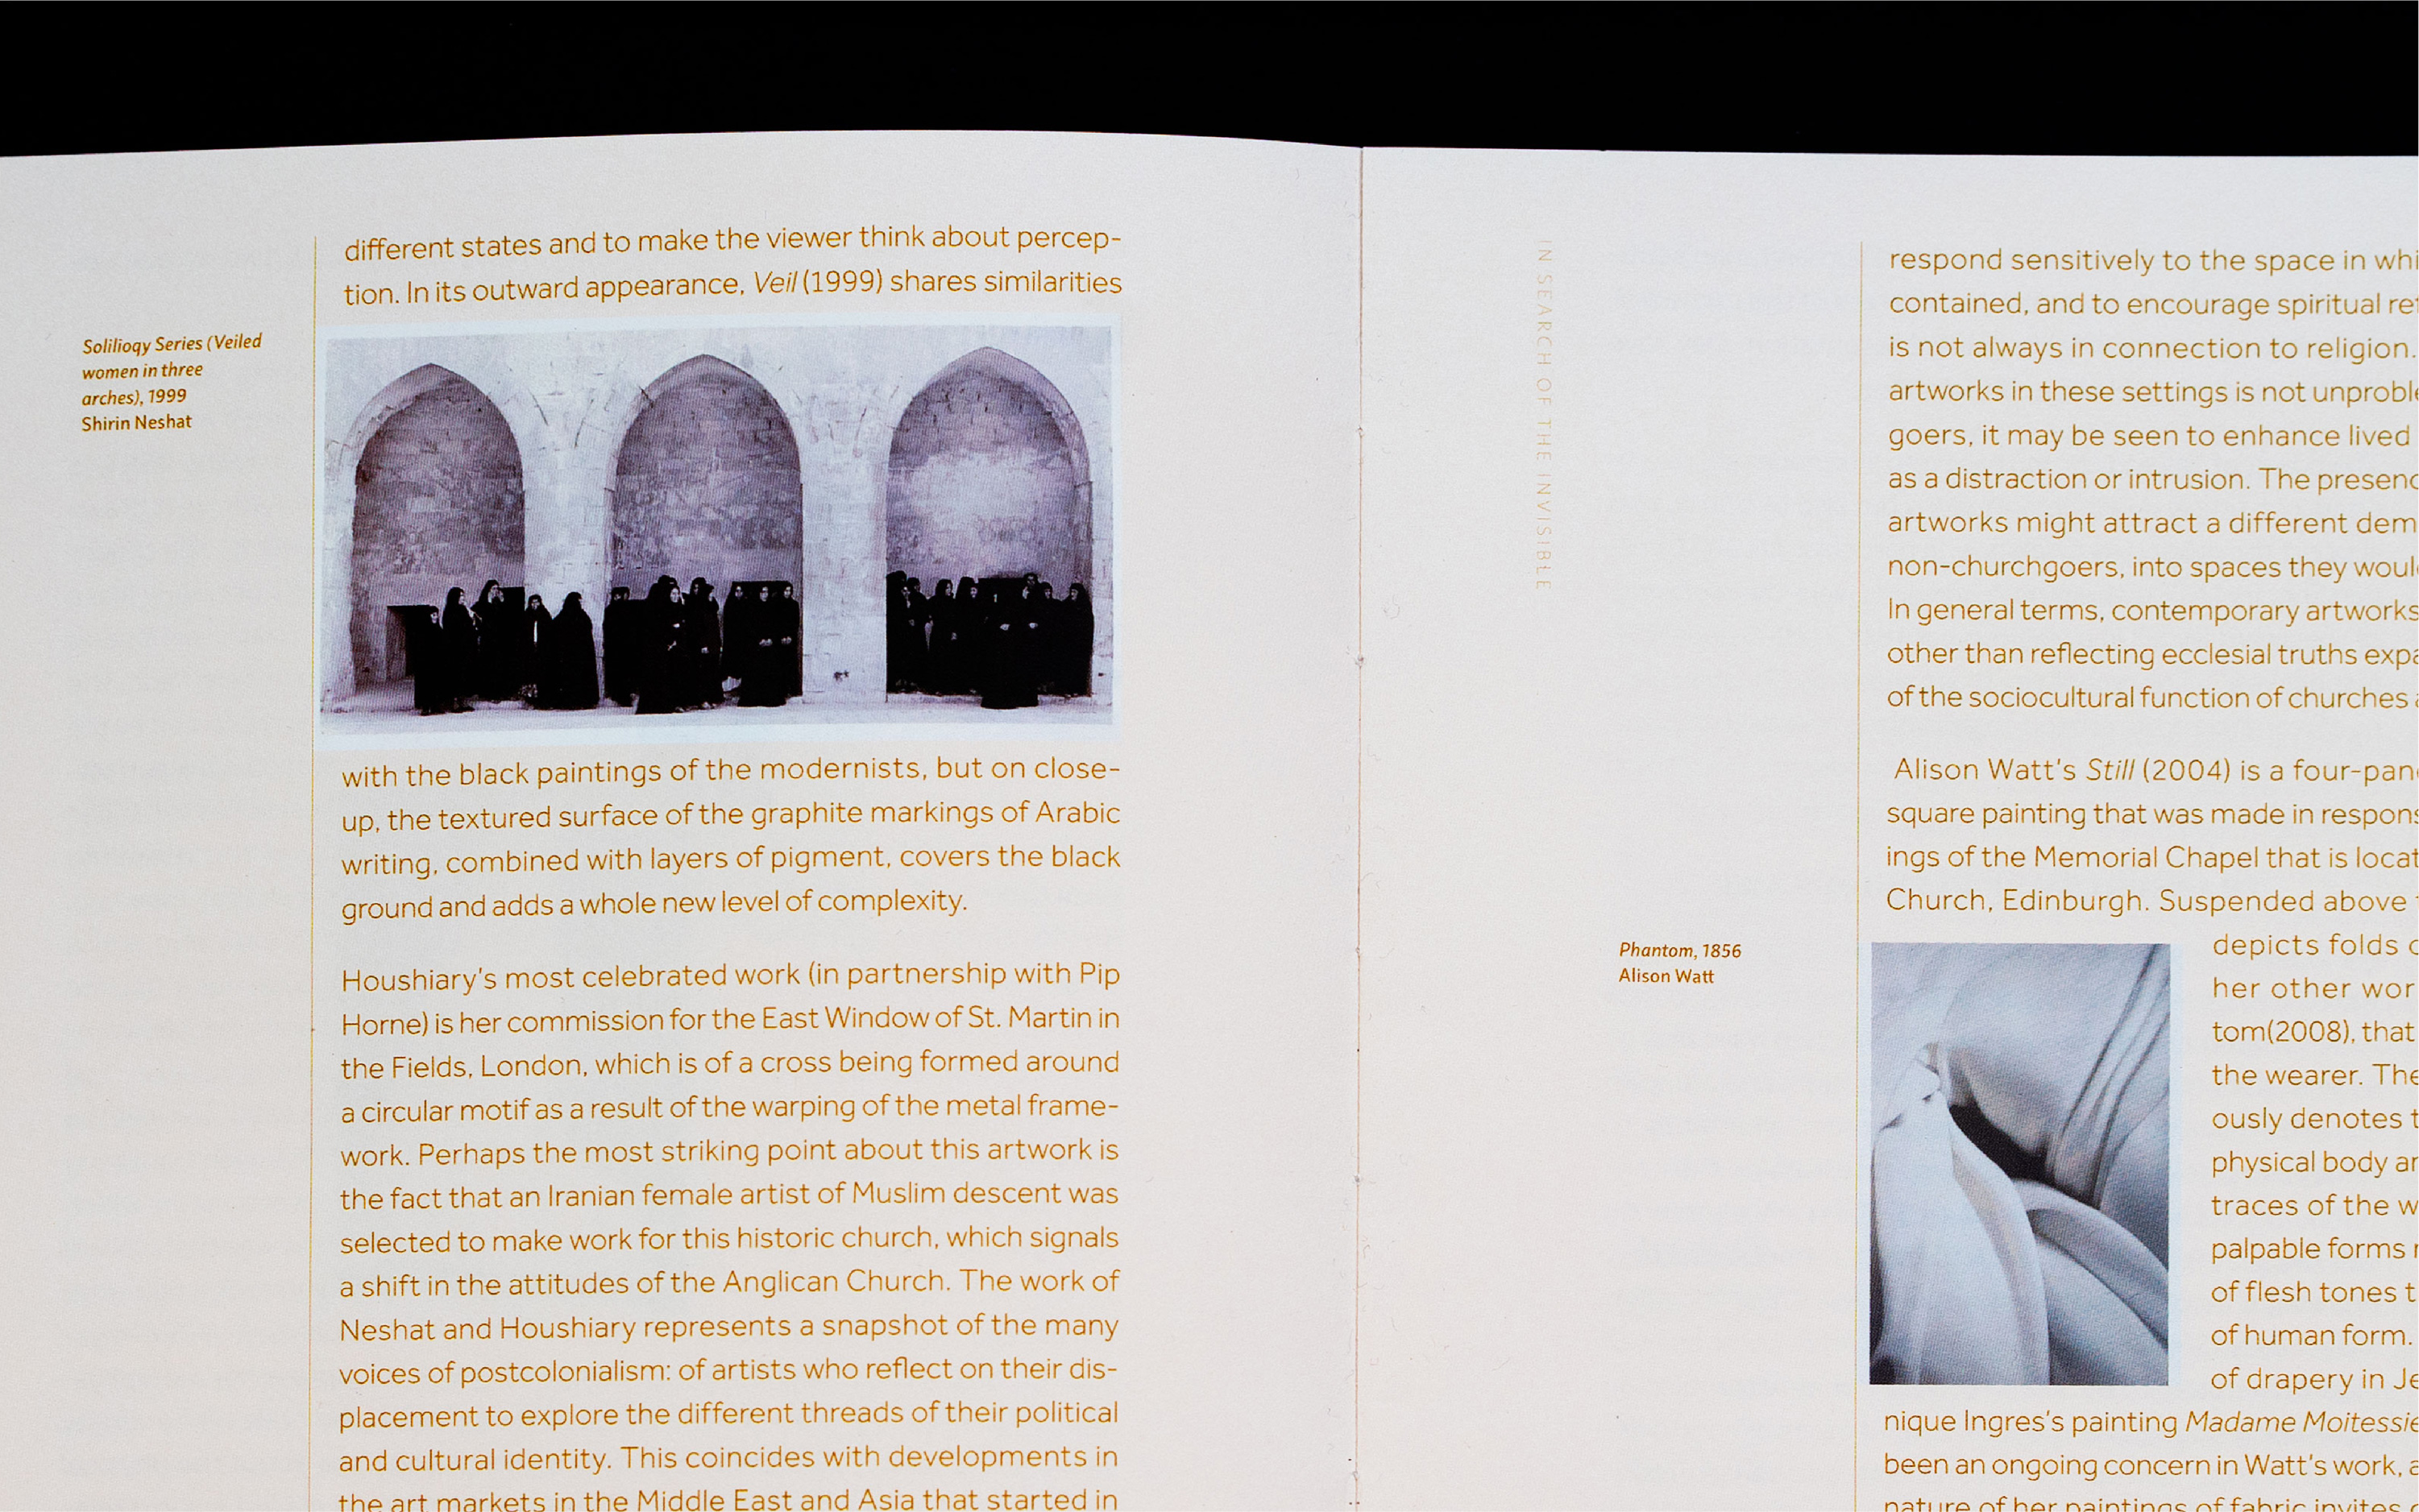 different states and to make the viewer think about percep-
tion. In its outward appearance, Veil (1999) shares similarities
Solilioqy Series (Veiled
women in three
arches), 1999
Shirin Neshat
with the black paintings of the modernists, but on close-
up, the textured surface of the graphite markings of Arabic
writing, combined with layers of pigment, covers the black
ground and adds a whole new level of complexity.
Houshiary's most celebrated work (in partnership with Pip
Horne) is her commission for the East Window of St. Martin in
the Fields, London, which is of a cross being formed around
a circular motif as a result of the warping of the metal frame-
work. Perhaps the most striking point about this artwork is
the fact that an Iranian female artist of Muslim descent was
selected to make work for this historic church, which signals
a shift in the attitudes of the Anglican Church. The work of
Neshat and Houshiary represents a snapshot of the many
voices of postcolonialism: of artists who reflect on their dis-
placement to explore the different threads of their political
and cultural identity. This coincides with developments in
the art markets in the Middle East and Asia that started in
IN SEARCH OF THE INVISIBLE
respond sensitively to the space in whi
contained, and to encourage spiritual ref
is not always in connection to religion.
artworks in these settings is not unproble
goers, it may be seen to enhance lived
as a distraction or intrusion. The presenc
artworks might attract a different dem
non-churchgoers, into spaces they woul
In general terms, contemporary artworks
other than reflecting ecclesial truths expa
of the sociocultural function of churches a
Alison Watt's Still (2004) is a four-pan
square painting that was made in respons
ings of the Memorial Chapel that is locat
Church, Edinburgh. Suspended above
Phantom, 1856
Alison Watt
depicts folds o
her other wor
tom(2008), that
the wearer. The
ously denotes t
physical body an
traces of the w
palpable forms
of flesh tones t
of human form.
of drapery in Je
nique Ingres's painting Madame Moitessie
been an ongoing concern in Watt's work, a
nature of her paintings of fabric invites